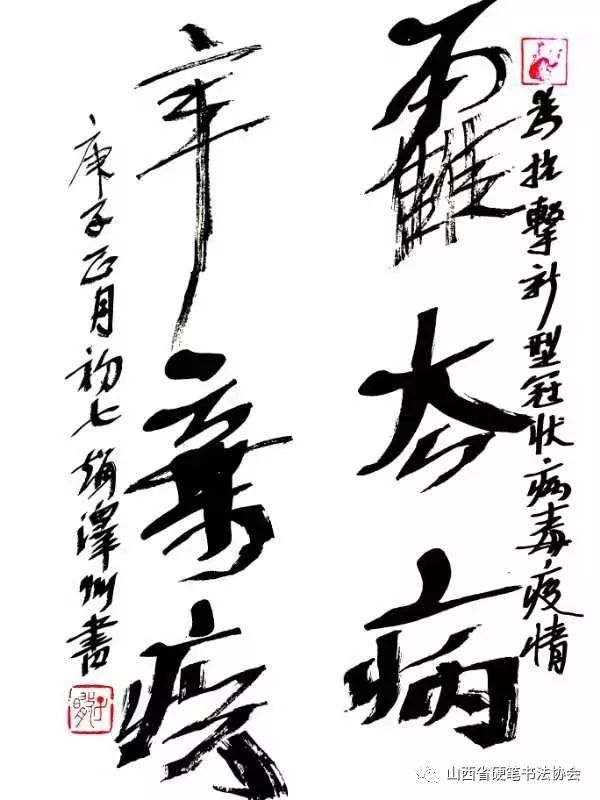 為抗擊新型冠状病毒疫情
靃厺病
辛棄疾
庚子正月初七 趙澤州書
山西省硬笔书法协会